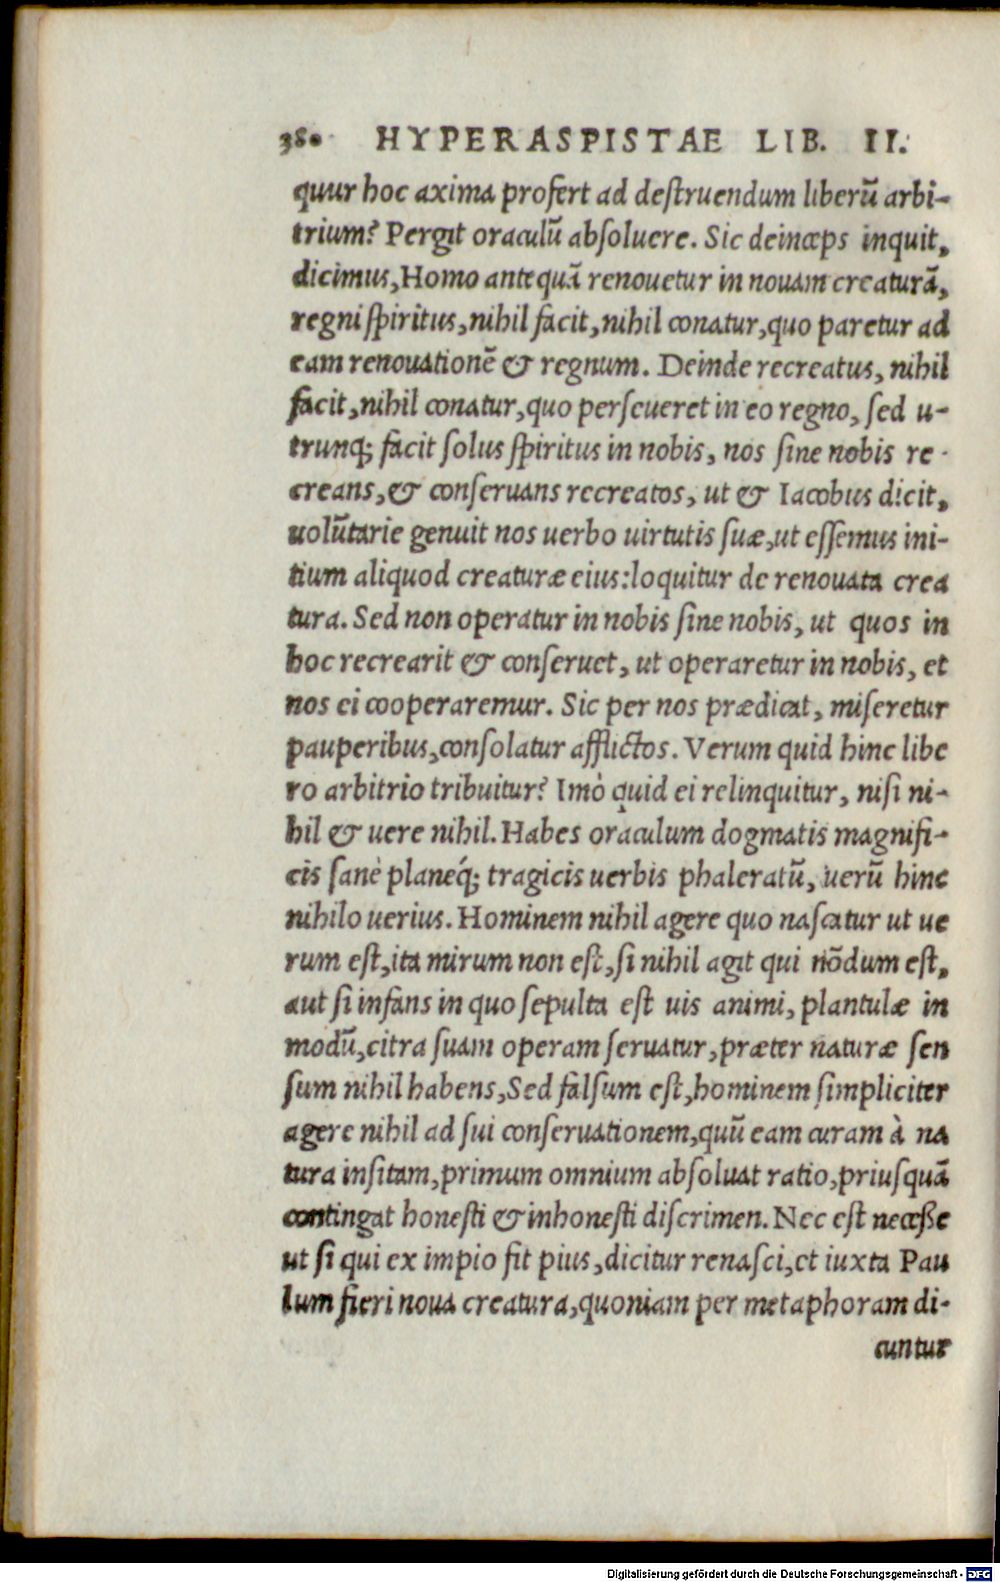 380 HYPERASPISTAE LIB. II.
quur hoc axima profert ad destruendum liberũ arbi-
trium? Pergit oraculũ absoluere. Sic deinceps inquit,
dicimus, Homo antequã renouetur in nouam creaturã,
regni spiritus, nihil facit, nihil conatur, quo paretur ad
eam renouationẽ & regnum. Deinde recreatus, nihil
facit, nihil conatur, quo perseueret in eo regno, sed u-
trunq; facit solus spiritus in nobis, nos sine nobis re-
creans, & conseruans recreatos, ut & Iacobus dicit,
uolũtarie genuit nos uerbo uirtutis suæ, ut essemus ini-
tium aliquod creaturæ eius: loquitur de renouata crea
tura. Sed non operatur in nobis sine nobis, ut quos in
hoc recrearit & conseruet, ut operaretur in nobis, et
nos ei cooperaremur. Sic per nos prædicat, miseretur
pauperibus, consolatur afflictos. Verum quid hinc libe
ro arbitrio tribuitur? Imò quid ei relinquitur, nisi ni-
hil & uere nihil. Habes oraculum dogmatis magnifi-
cis sanè planeq́; tragicis uerbis phaleratũ, uerũ hinc
nihilo uerius. Hominem nihil agere quo nascatur ut ue
rum est, ita mirum non est, si nihil agit qui nõdum est,
aut si infans in quo sepulta est uis animi, plantulæ in
modũ, citra suam operam seruatur, præter naturæ sen
sum nihil habens, Sed falsum est, hominem simpliciter
agere nihil ad sui conseruationem, quũ eam curam à na
tura insitam, primum omnium absoluat ratio, priusquã
contingat honesti & inhonesti discrimen. Nec est necesse
ut si qui ex impio fit pius, dicitur renasci, et iuxta Pau
lum fieri noua creatura, quoniam per metaphoram di-
cuntur
Digitalisierung gefördert durch die Deutsche Forschungsgemeinschaft - DFG